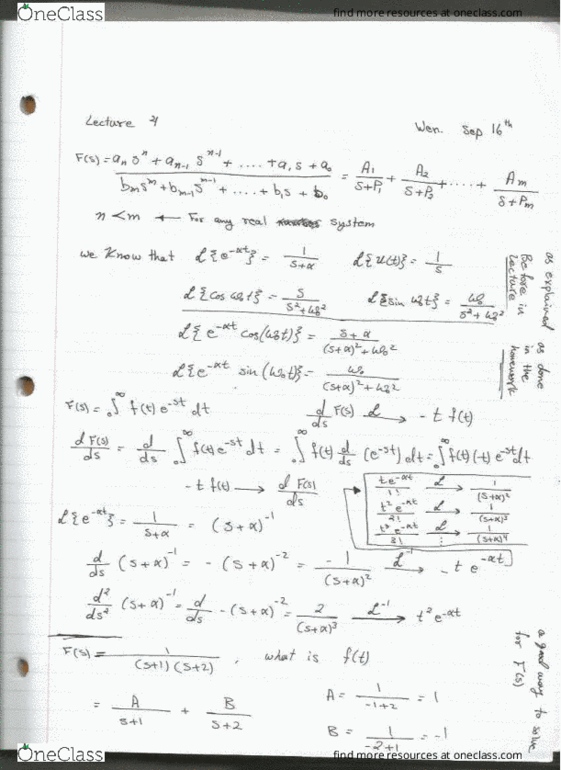 OneClass
find more resources at oneclass.com
Lecture 4
Wen. Sep 16th
F(s) = (aₙ sⁿ + aₙ₋₁ sⁿ⁻¹ + .... + a₁ s + a₀) / (bₘ sᵐ + bₘ₋₁ sᵐ⁻¹ + .... + b₁ s + b₀) = A₁/(s+P₁) + A₂/(s+P₂) + ..... + Aₘ/(s+Pₘ)
n < m ← For any real system
we Know that ℒ{e^-αt} = 1/(s+α) ℒ{u(t)} = 1/s
ℒ{cos ω₀t} = s/(s²+ω₀²) ℒ{sin ω₀t} = ω₀/(s²+ω₀²)
as explained Before in Lecture
as done in the homework
ℒ{e^-αt cos(ω₀t)} = (s+α)/((s+α)²+ω₀²)
ℒ{e^-αt sin(ω₀t)} = ω₀/((s+α)²+ω₀²)
F(s) = ₀∫^∞ f(t) e^-st dt d/ds F(s) ℒ → - t f(t)
dF(s)/ds = d/ds ₀∫^∞ f(t) e^-st dt = ₀∫^∞ f(t) d/ds (e^-st) dt = ₀∫^∞ f(t)(-t) e^-st dt
- t f(t) → d F(s)/ds
t e^-αt/1! ℒ → 1/(s+α)²
t² e^-αt/2! ℒ → 1/(s+α)³
t³ e^-αt/3! ℒ → 1/(s+α)⁴
⋮
ℒ{e^-αt} = 1/(s+α) = (s+α)⁻¹
d/ds (s+α)⁻¹ = - (s+α)⁻² = -1/(s+α)² ℒ⁻¹ → - t e^-αt
d²/ds² (s+α)⁻¹ = d/ds - (s+α)⁻² = 2/(s+α)³ ℒ⁻¹ → t² e^-αt
F(s) = 1/((s+1)(s+2)), what is f(t)
a good way to solve for F(s)
= A/(s+1) + B/(s+2) A = 1/(-1+2) = 1
B = 1/(-2+1) = -1
OneClass
find more resources at oneclass.com